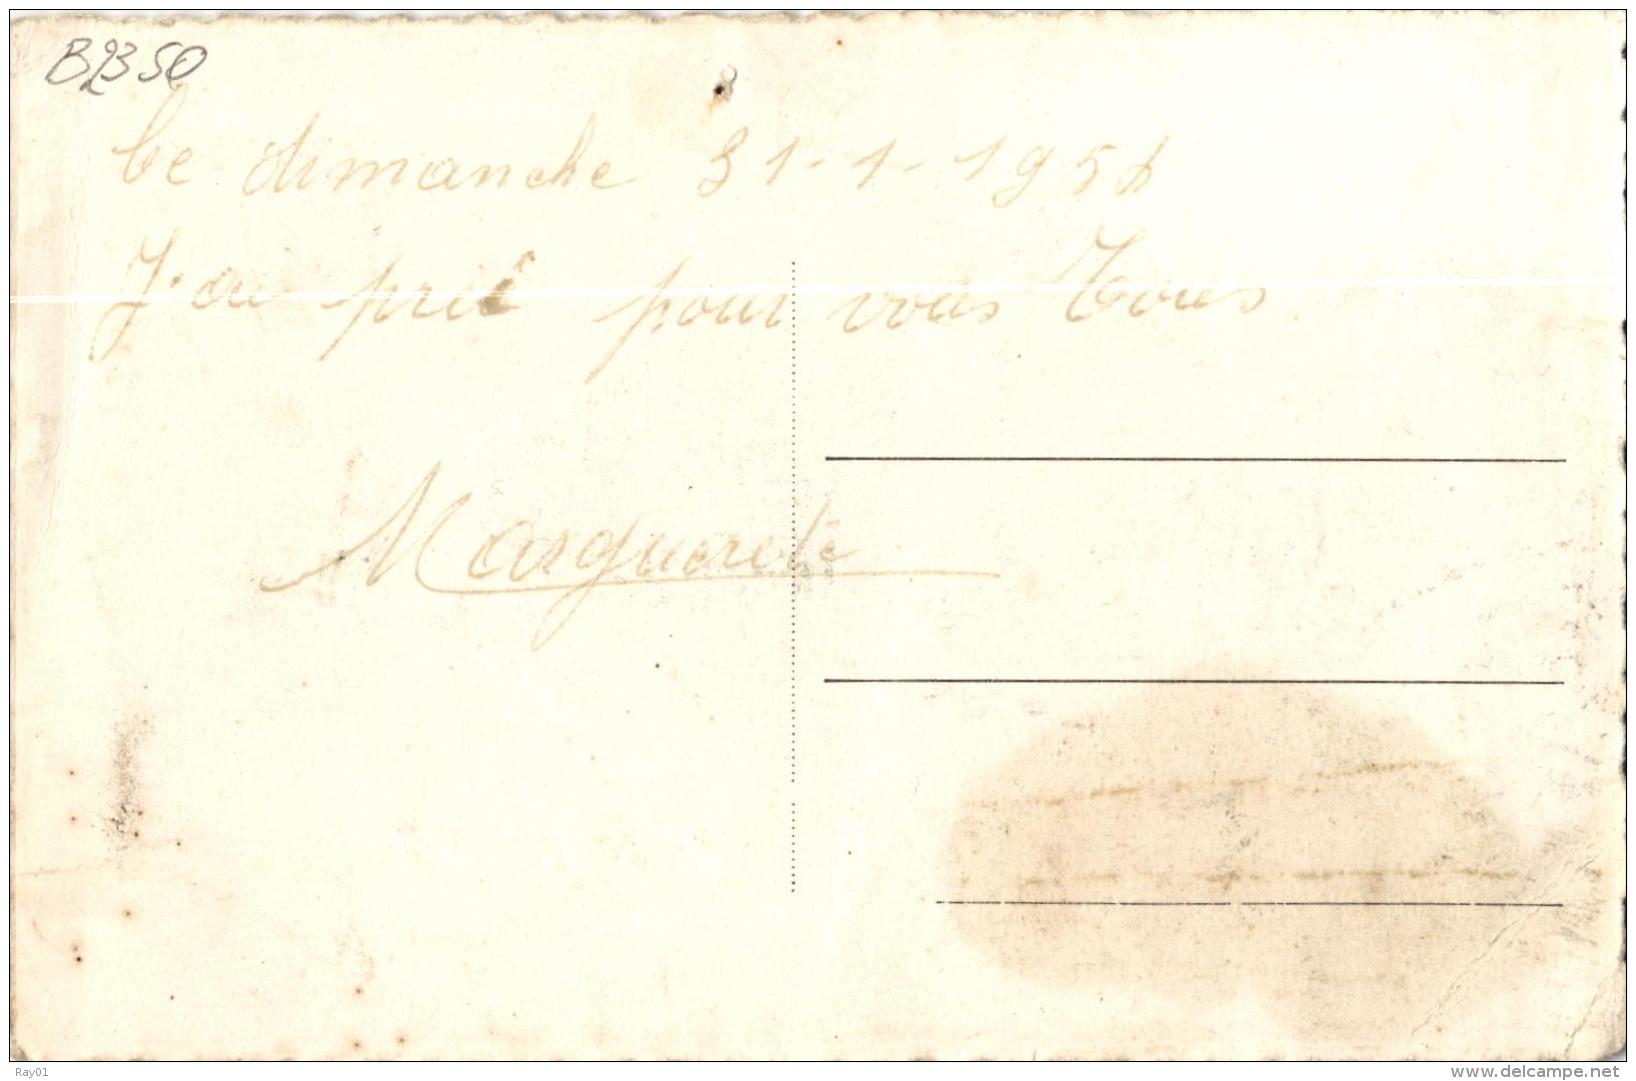 B2350
Le dimanche 31-1-1954
J'ai prié pour vous Tous
Marguerete
Ray01
www.delcampe.net